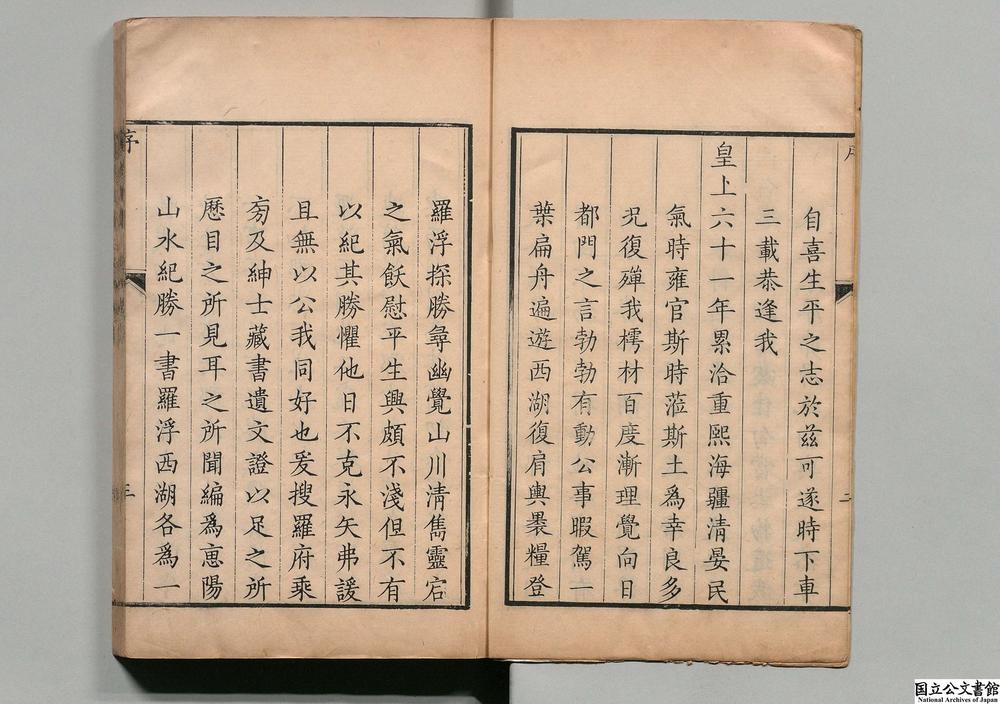 自喜生平之志於茲可遂時下車
三載恭逢我
皇上六十一年累洽重熙海疆清晏民
氣時雍官斯時蒞斯土爲幸良多
況復殫我樗材百度漸理覺向日
都門之言勃勃有動公事暇駕一
葉扁舟遍遊西湖復肩輿褁糧登
羅浮探勝尋幽覺山川清雋靈宕
之氣飫慰平生興頗不淺但不有
以紀其勝懼他日不克永矢弗諼
且無以公我同好也爰搜羅府乘
旁及紳士藏書遺文證以足之所
歷目之所見耳之所聞編爲惠陽
山水紀勝一書羅浮西湖各爲一
序
三
国立公文書館
National Archives of Japan